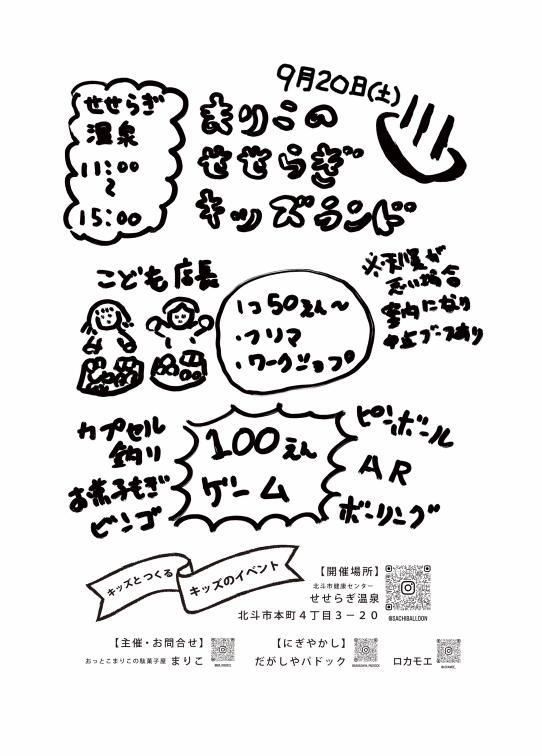 9月20日(土)
せせらぎ
温泉
11:00
〜
15:00
まりこの
せせらぎ
キッズランド
こども店長
1コ50えん〜
・フリマ
・ワークショップ
※天候が
悪い場合
室内になり
中止ブースあり
カプセル
釣り
お菓子もぎ
ビンゴ
100えん
ゲーム
ピンボール
AR
ボーリング
キッズとつくる
キッズのイベント
【開催場所】
北斗市健康センター
せせらぎ温泉
北斗市本町4丁目3−20
@SACHIBALLOON
【主催・お問合せ】
おっとこまりこの駄菓子屋 まりこ
【にぎやかし】
だがしやパドック
ロカモエ